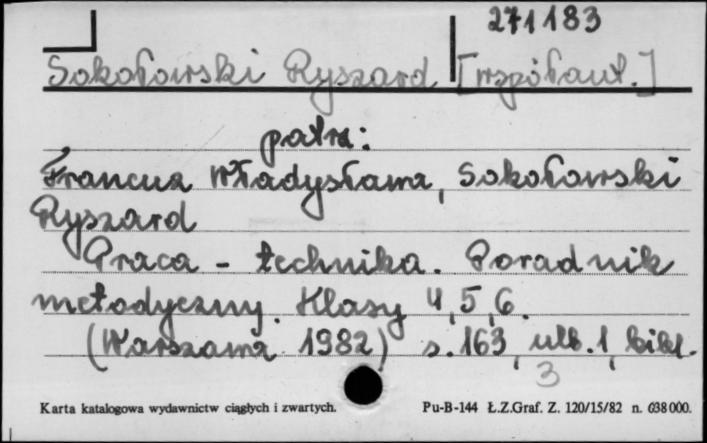 271183
Sokołowski Ryszard [współaut.]
patrz:
Francuz Władysława, Sokołowski
Ryszard
Praca - technika. Poradnik
metodyczny. Klasy 4, 5, 6.
(Warszawa 1982) s. 163, ulb. 1, bibl.
3
Karta katalogowa wydawnictw ciągłych i zwartych. Pu-B-144 Ł.Z.Graf. Z. 120/15/82 n. 638000.